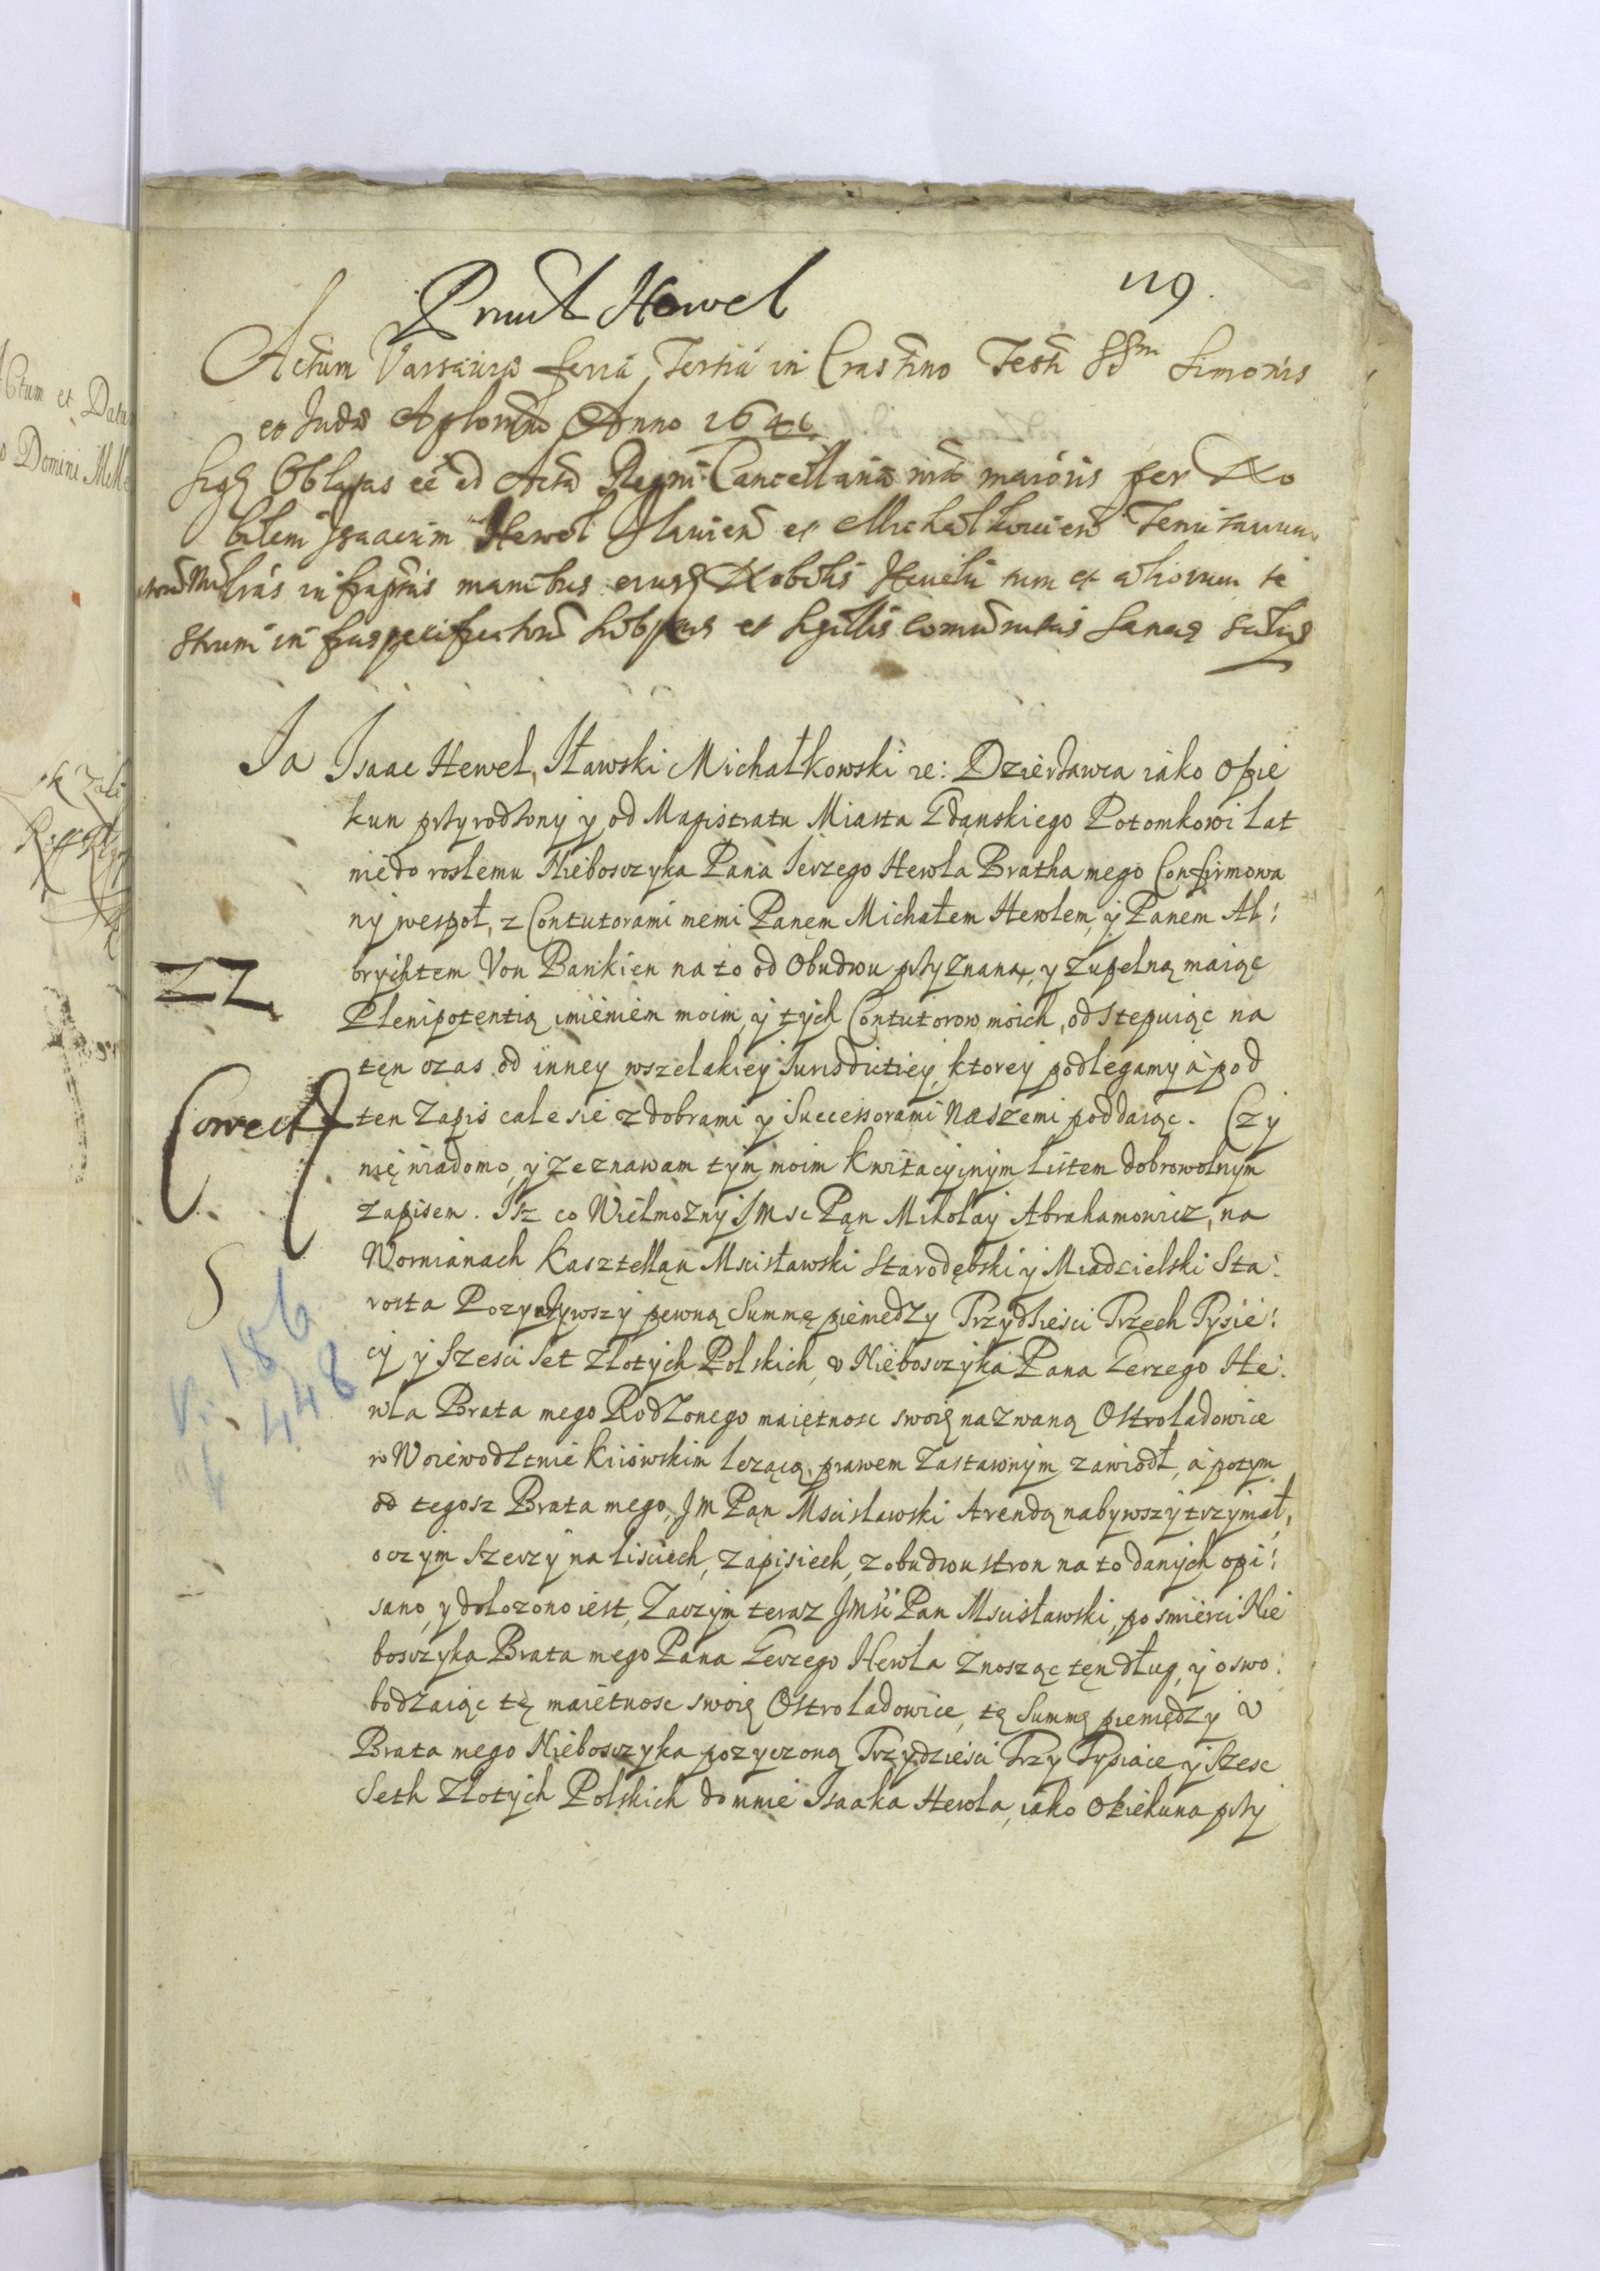 119.
Hewel
Actum Varsaviæ feria Tertia in Crastino Festi SSm Simonis
et Judæ Aplorum Anno 1641
Oblatas ee ad Acta Regni Cancellariæ maioris per No
bilem Isaacum Hewel et
infrascriptas manibus eiusq Nobilis Hevelii tum et aliorum te
stium et sigillis comunitas sanas salvas
Ja Isaac Hewel, Iławski Michałkowski re: Dzierżawca iáko opie
kun przyrodzony y od Magistratu Miasta Gdanskiego Potomkowi lat
niedo rosłemu Nieboszyka Pána Jerzego Hewla Bratha mego Confirmowa
ny wespoł, z Contutorami memi Panem Michałem Hewlem, y Panem Al:
brychtem Von Bankien na to od Obudwu przyznaną, y Zupełną maiąc
Plenipotentią imieniem moim, y tych Contutorow moich, odstępuiąc na
ten czas od inney wszelakiey Jurisdictiey, ktorey podlegamy á pod
ten Zapis cale sie z dobrami y Successorami Naszemi poddaiąc. Czy
nię wiadomo, y zeznawam tym moim kwitacyjnym listem dobrowolnym
zapisem. Isz co Wielmozny JMsc Pąn Mikołay Abrahamowicz, na
Wornianach Kasztelląn Mscisławski Starodębski y Miadzielski Sta:
rosta Pozyczywszy pewną Summę pieniedzy Trzydzieści Trzech Tysie:
cy y Szesci set Złotych Polskich, v Nieboszyka Pana Gerzego He:
wla Brata mego Rodzonego maiętnosc swoię nazwaną Ostroladowice
w Woiewodztwie kiiowskim lezącą, prawem Zastawnym zawiodł, á potym
od tegosz Brata mego, JM Pąn Mscisławski Arendą nabywszy trzymał,
o czym szerzy na lisciech, zapisiech, z obudwu stron na to danych opi:
sano, y dołozono iest, Zaczym teraz JMsc Pan Mscisławski, po smierci Nie
boszyka Brata mego Pana Gerzego Hewla Znosząc tęn dług, y oswo:
bodzaiąc tę maiętnosc swoię Ostroladowice, tę Summę pieniędzy v
Brata mego Nieboszyka pozyczoną Trzydzieści Trzy Tysiace y Szesc
Seth Złotych Polskich do mnie Isaaka Hewla, iáko Opiekuna przy
ZZ
Correct
186
448
Ctum et Datu
o Domini Mille